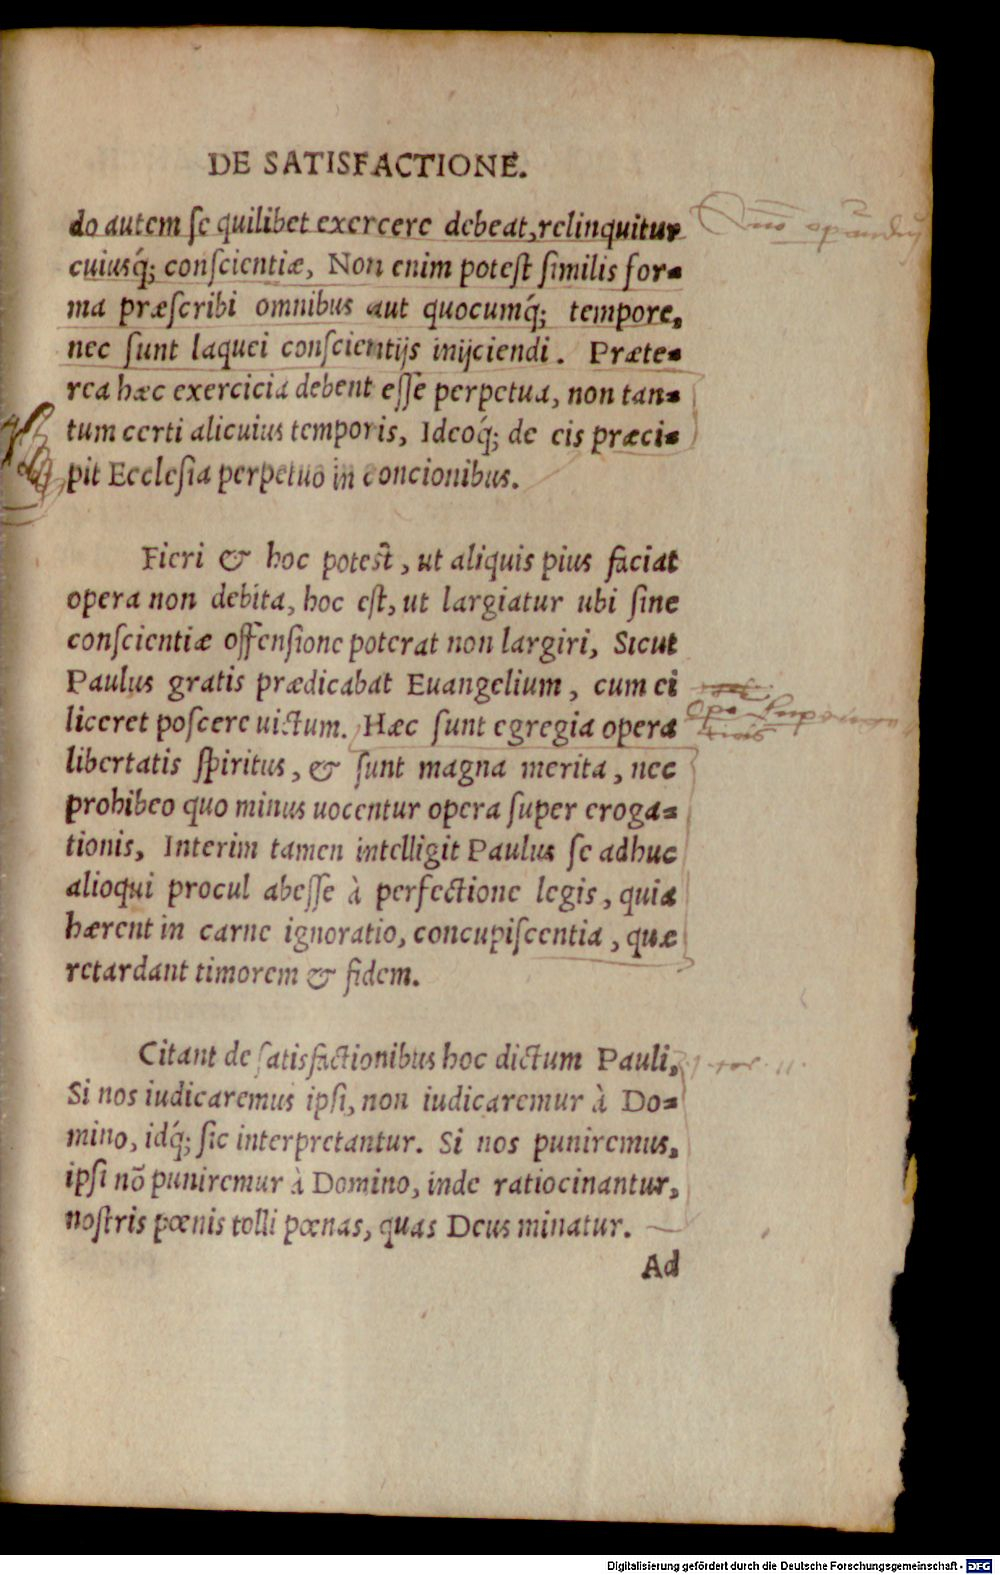 DE SATISFACTIONE.
do autem ſe quilibet exercere debeat, relinquitur
cuiusq́; conſcientiæ, Non enim poteſt ſimilis for=
ma præſcribi omnibus aut quocumq́; tempore,
nec ſunt laquei conſcientijs inijciendi. Præte=
rea hæc exercicia debent eſſe perpetua, non tan=
tum certi alicuius temporis, Ideoq́; de eis præci=
pit Eccleſia perpetuo in concionibus.
Fieri & hoc poteſt, ut aliquis pius faciat
opera non debita, hoc eſt, ut largiatur ubi ſine
conſcientiæ offenſione poterat non largiri, Sicut
Paulus gratis prædicabat Euangelium, cum ei
liceret poſcere uictum. Hæc ſunt egregia opera
libertatis ſpiritus, & ſunt magna merita, nec
prohibeo quo minus uocentur opera ſuper eroga=
tionis, Interim tamen intelligit Paulus ſe adhuc
alioqui procul abeſſe à perfectione legis, quia
hærent in carne ignoratio, concupiſcentia, quæ
retardant timorem & fidem.
Citant de ſatisfactionibus hoc dictum Pauli,
Si nos iudicaremus ipſi, non iudicaremur à Do=
mino, idq́; ſic interpretantur. Si nos puniremus,
ipſi nō puniremur à Domino, inde ratiocinantur,
noſtris pœnis tolli pœnas, quas Deus minatur.
Ad
Digitalisierung gefördert durch die Deutsche Forschungsgemeinschaft - DFG